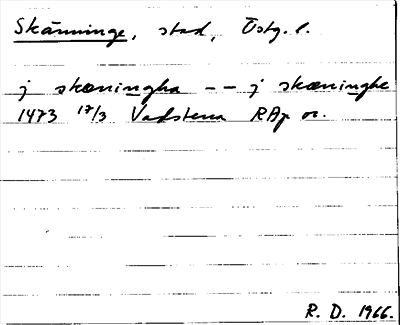 Skänninge, stad, Östg. l.
j skæningha -- j skæninghe
1473 17/3 Vadstena RAp or.
R. D. 1966.